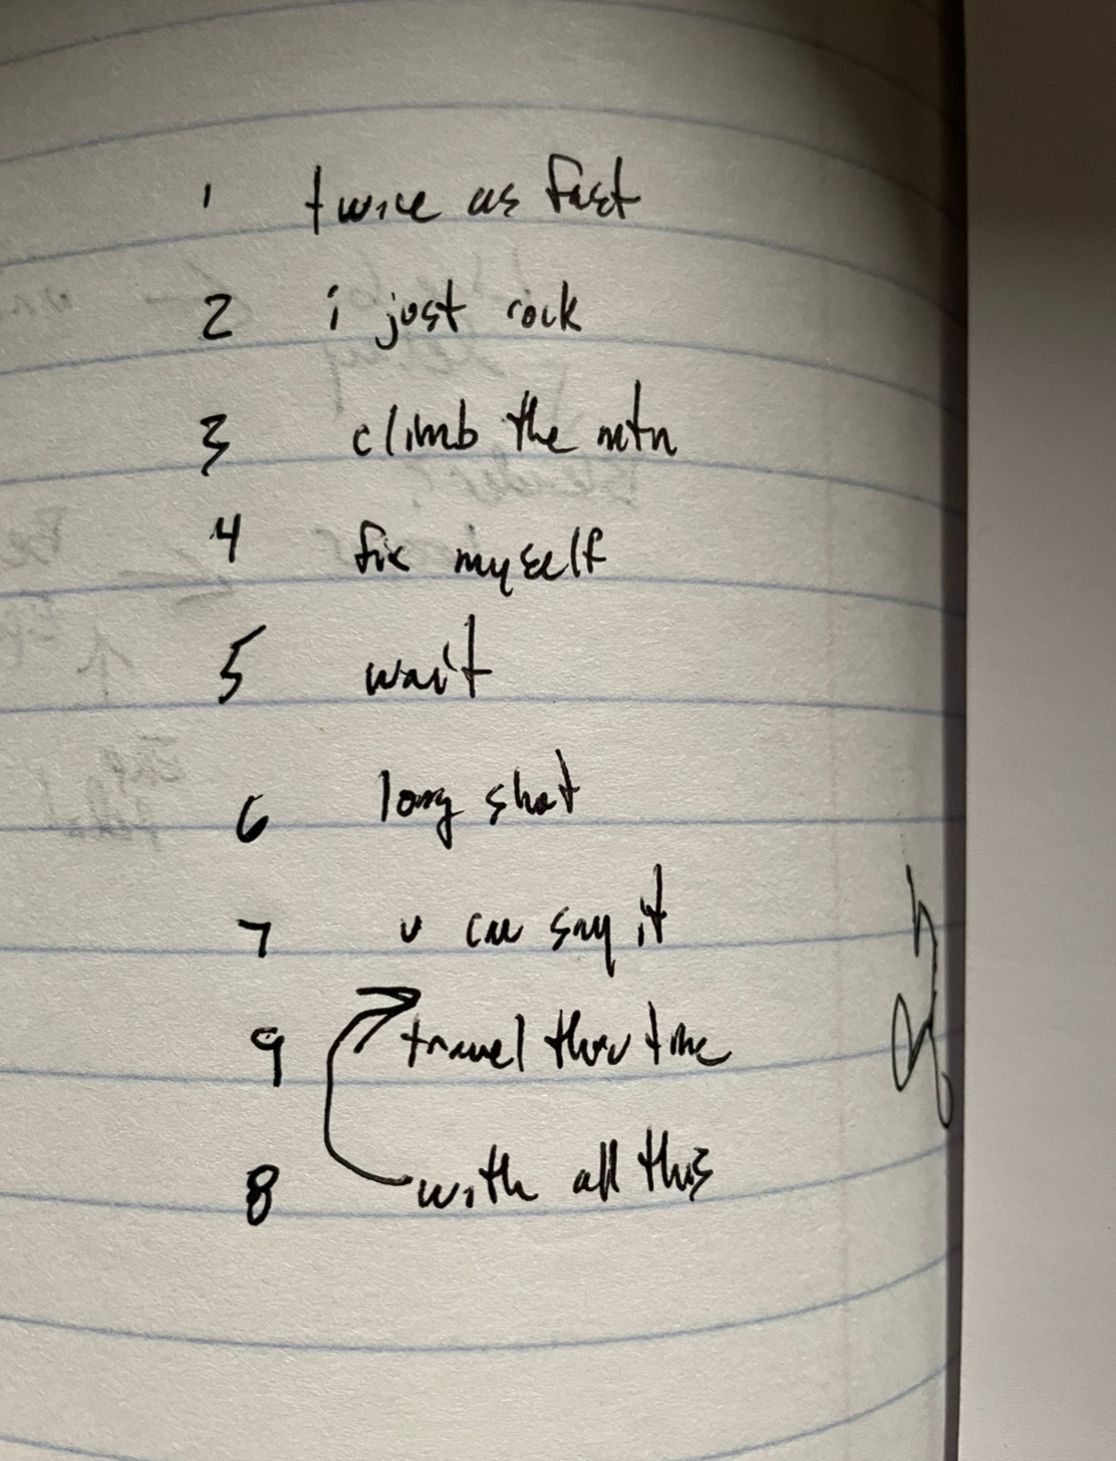 1 twice as fast
2 i just rock
3 climb the mtn
4 fix myself
5 wait
6 long shot
7 u can say it
9 travel thru time
8 with all this